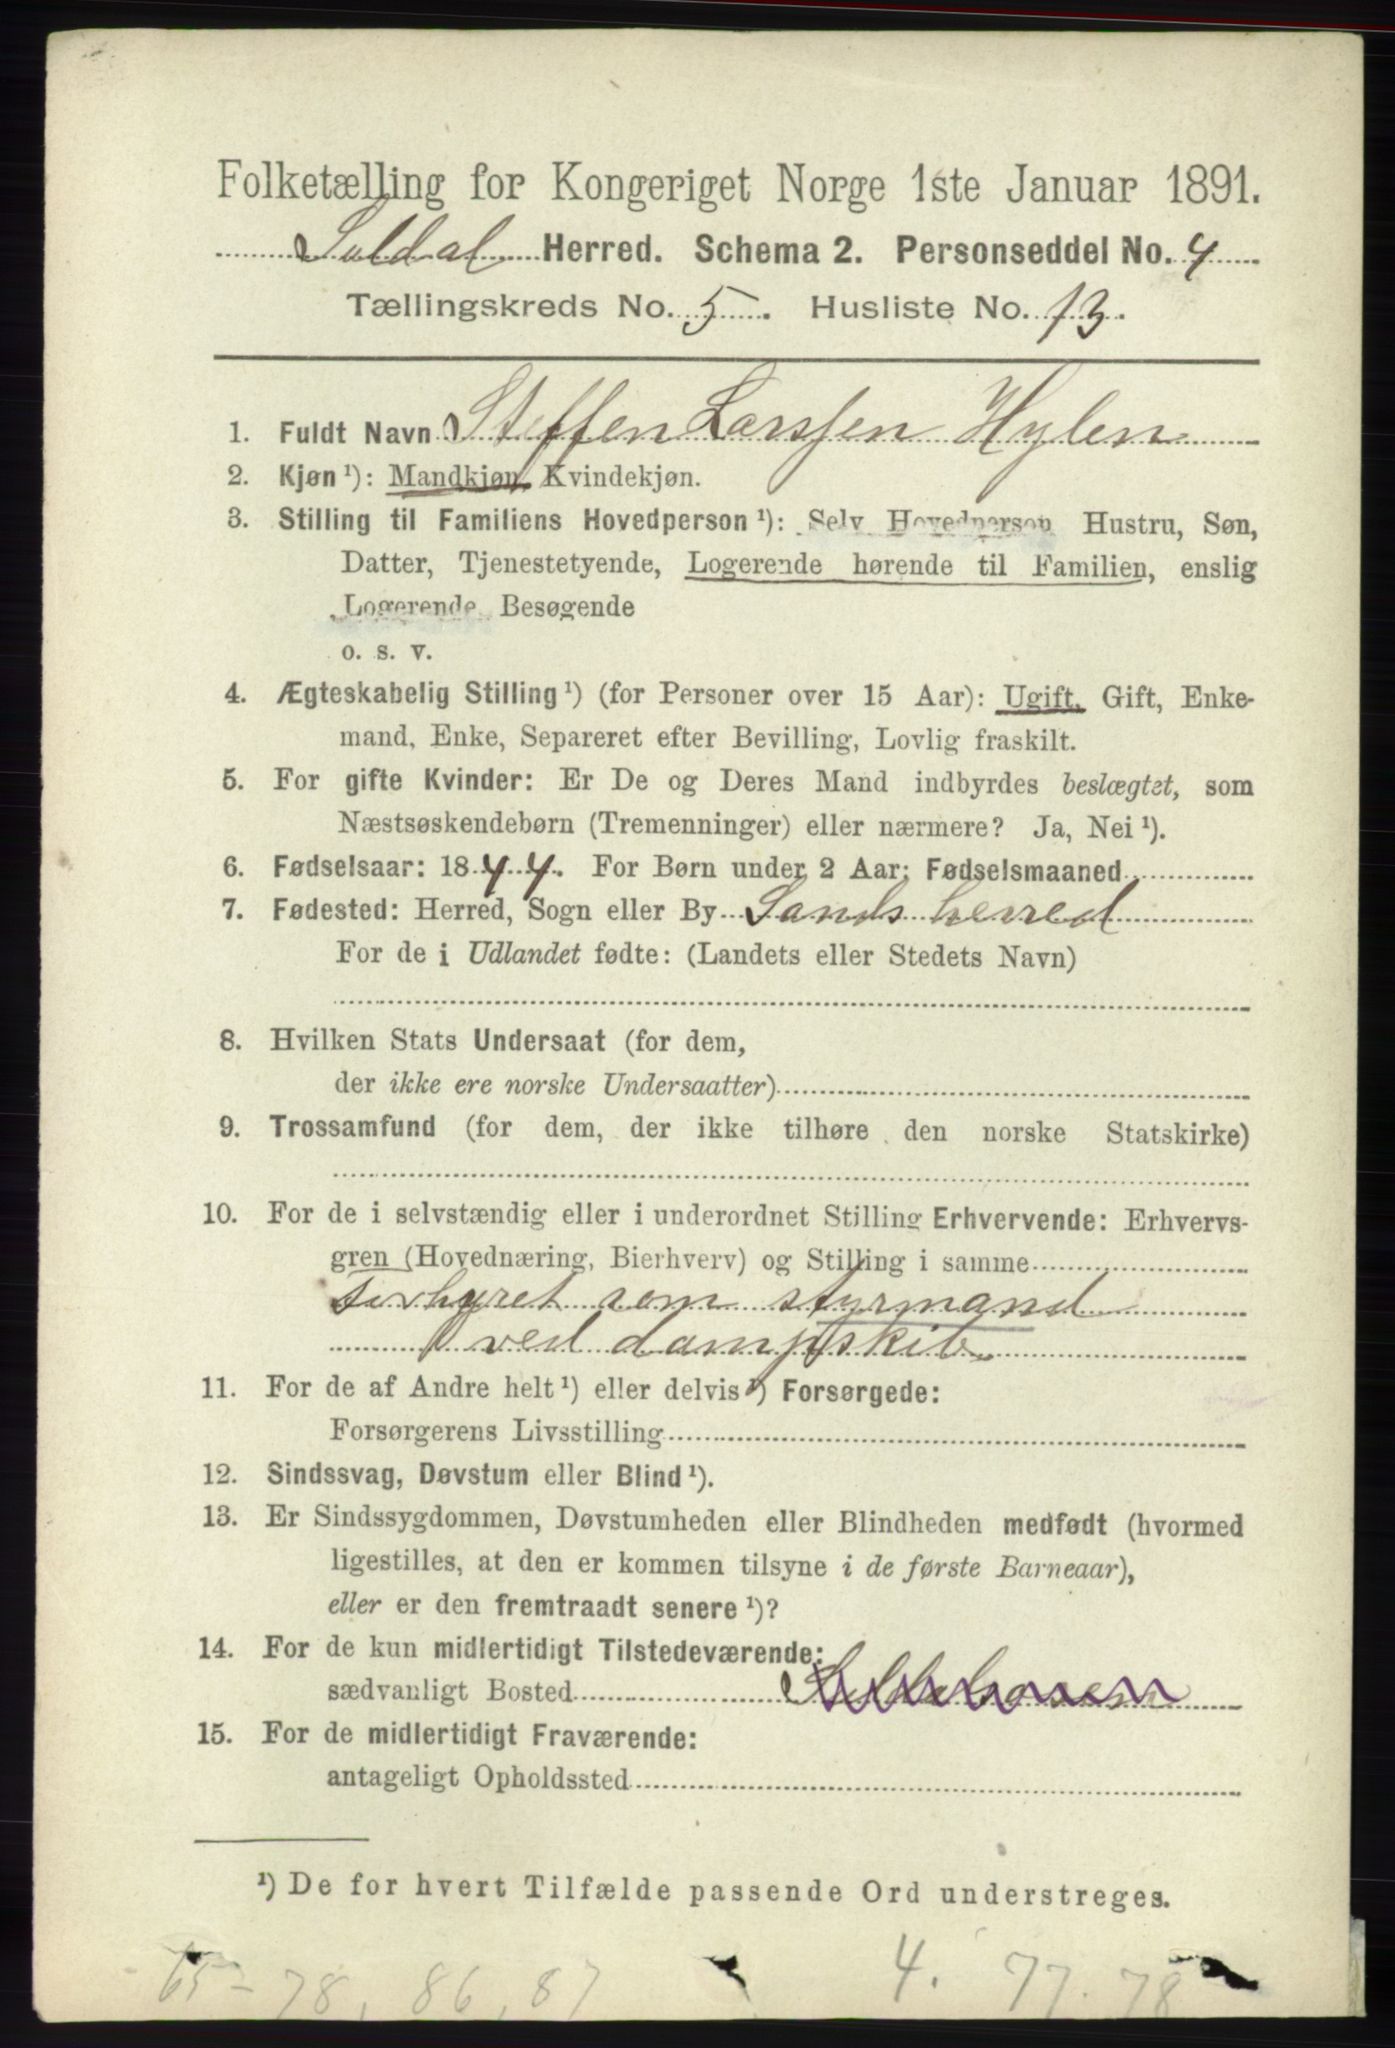 Folketælling for Kongeriget Norge 1ste Januar 1891.
Suldal Herred. Schema 2. Personseddel No. 4
Tællingskreds No. 5. Husliste No. 13.
1. Fuldt Navn Steffen Larssen Hylen
2. Kjøn ¹): Mandkjøn, Kvindekjøn.
3. Stilling til Familiens Hovedperson ¹): Selv Hovedperson Hustru, Søn,
Datter, Tjenestetyende, Logerende hørende til Familien, enslig
Logerende Besøgende
o. s. v.
4. Ægteskabelig Stilling ¹) (for Personer over 15 Aar): Ugift, Gift, Enke-
mand, Enke, Separeret efter Bevilling, Lovlig fraskilt.
5. For gifte Kvinder: Er De og Deres Mand indbyrdes beslægtet, som
Næstsøskendebørn (Tremenninger) eller nærmere? Ja, Nei ¹).
6. Fødselsaar: 1844. For Børn under 2 Aar: Fødselsmaaned
7. Fødested: Herred, Sogn eller By Sands herred
For de i Udlandet fødte: (Landets eller Stedets Navn)
8. Hvilken Stats Undersaat (for dem,
der ikke ere norske Undersaatter)
9. Trossamfund (for dem, der ikke tilhøre den norske Statskirke)
10. For de i selvstændig eller i underordnet Stilling Erhvervende: Erhvervs-
gren (Hovednæring, Bierhverv) og Stilling i samme
forhyret som styrmand
ved dampskib.
11. For de af Andre helt ¹) eller delvis ¹) Forsørgede:
Forsørgerens Livsstilling
12. Sindssvag, Døvstum eller Blind ¹).
13. Er Sindssygdommen, Døvstumheden eller Blindheden medfødt (hvormed
ligestilles, at den er kommen tilsyne i de første Barneaar),
eller er den fremtraadt senere ¹)?
14. For de kun midlertidigt Tilstedeværende:
sædvanligt Bosted Suldalsosen
15. For de midlertidigt Fraværende:
antageligt Opholdssted
¹) De for hvert Tilfælde passende Ord understreges.
65-78, 86, 87 4. 77. 78